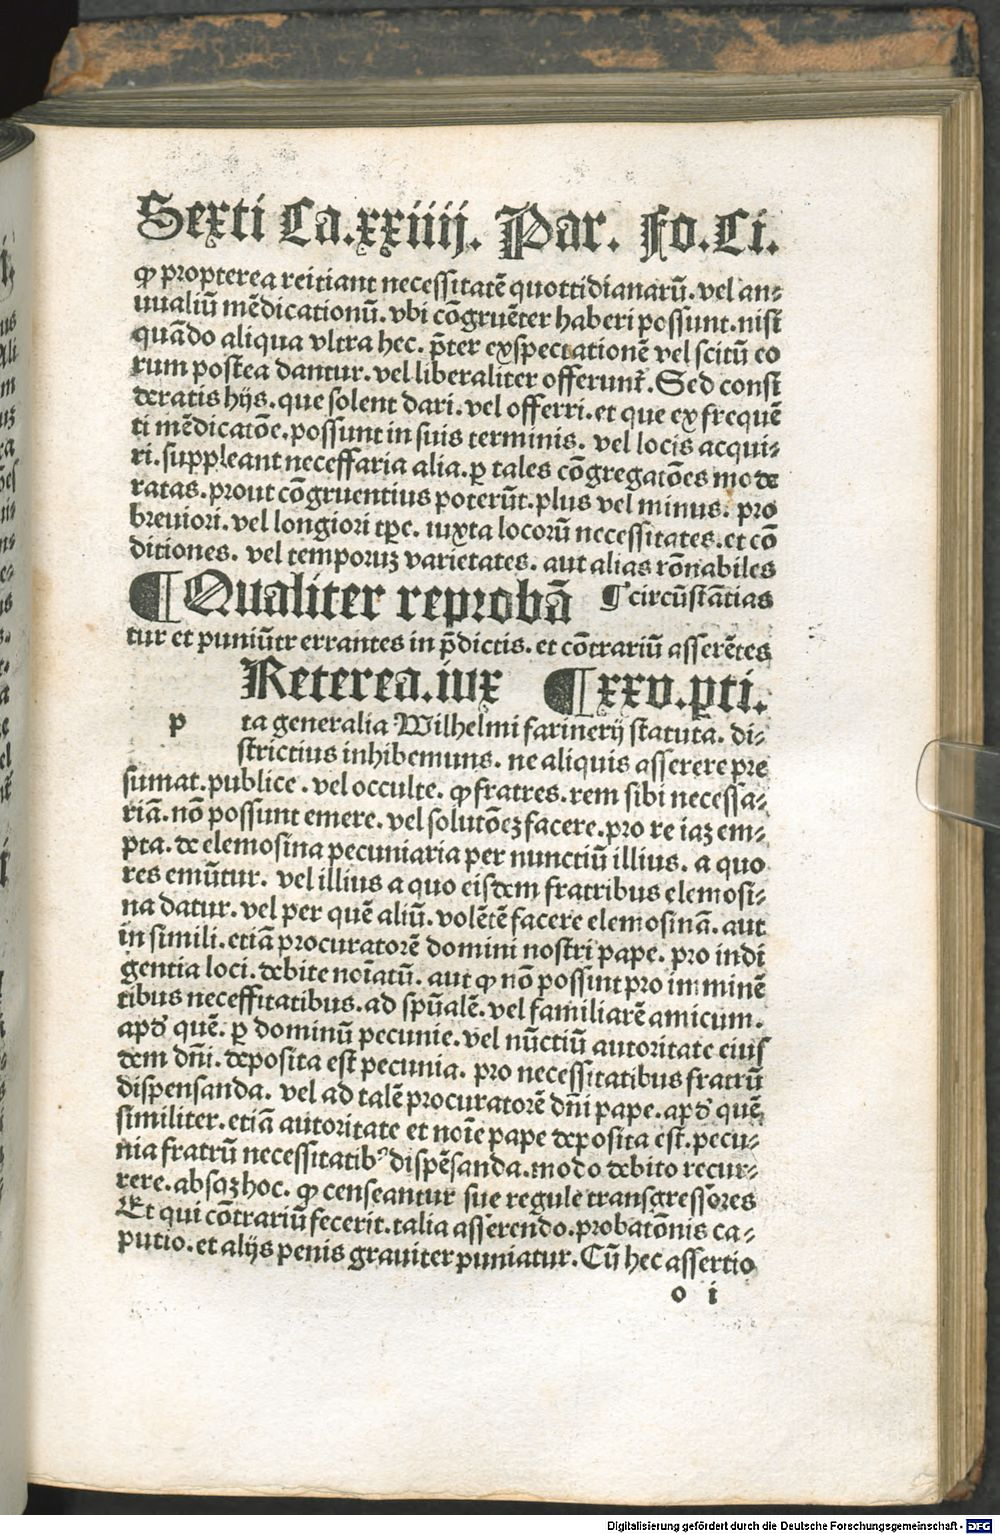 Sexti Ca.xxiiij. Par. Fo.Ci.
ꝙ propterea reitiant necessitatẽ quottidianarũ.vel an⸗
uualiũ mẽdicationũ.vbi cõgruẽter haberi possunt.nisi
quãdo aliqua vltra hec. p̃ter exspectationẽ vel scitũ eo
rum postea dantur.vel liberaliter offerunt̃.Sed consi
deratis hijs.que solent dari.vel offerri.et que ex frequẽ
ti mẽdicatõe.possunt in suis terminis. vel locis acqui⸗
ri.suppleant necessaria alia.ꝑ tales cõgregatões mode
ratas.prout cõgruentius poterũt.plus vel minus. pro
breuiori.vel longiori tꝑe. iuxta locorũ necessitates.et cõ
ditiones. vel temporuꝫ varietates. aut alias rõnabiles
¶Qualiter reprobã ¶circũstãtias
tur et puniũtr errantes in p̃dictis.et cõtrariũ asserẽtes
Reterea.iux ¶xxv.ꝑti.
p ta generalia Wilhelmi farinerij statuta. di⸗
strictius inhibemuns. ne aliquis asserere pre
sumat.publice.vel occulte. ꝙ fratres.rem sibi necessa⸗
riã.nõ possunt emere.vel solutõeꝫ facere.pro re iaꝫ em⸗
pta. de elemosina pecuniaria per nunctiũ illius. a quo
res emũtur. vel illius a quo eisdem fratribus elemosi⸗
na datur.vel per quẽ aliũ.volẽtẽ facere elemosinã. aut
in simili.etiã procuratorẽ domini nostri pape. pro indi
gentia loci.debite noĩatũ. aut ꝙ nõ possint pro imminẽ
tibus necessitatibus.ad spũalẽ.vel familiarẽ amicum.
apđ quẽ. ꝑ dominũ pecunie.vel nũctiũ autoritate eius
dem dñi.deposita est pecunia. pro necessitatibus fratrũ
dispensanda. vel ad talẽ procuratorẽ dñi pape.apđ quẽ
similiter.etiã autoritate et noĩe pape deposita est.pecu⸗
nia fratrũ necessitatibꝰ dispẽsanda.modo debito recur⸗
rere.absqꝫ hoc. ꝙ censeantur sue regule transgressores
Et qui cõtrariũ fecerit.talia asserendo.probatõnis ca⸗
putio.et alijs penis grauiter puniatur.Cũ hec assertio
o i
Digitalisierung gefördert durch die Deutsche Forschungsgemeinschaft - DFG